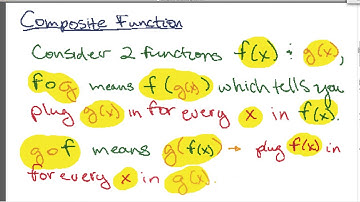 Composite Function
Consider 2 functions f(x) & g(x),
fog means f(g(x)) which tells you
plug g(x) in for every x in f(x).
gof means g(f(x)) → plug f(x) in
for every x in g(x).